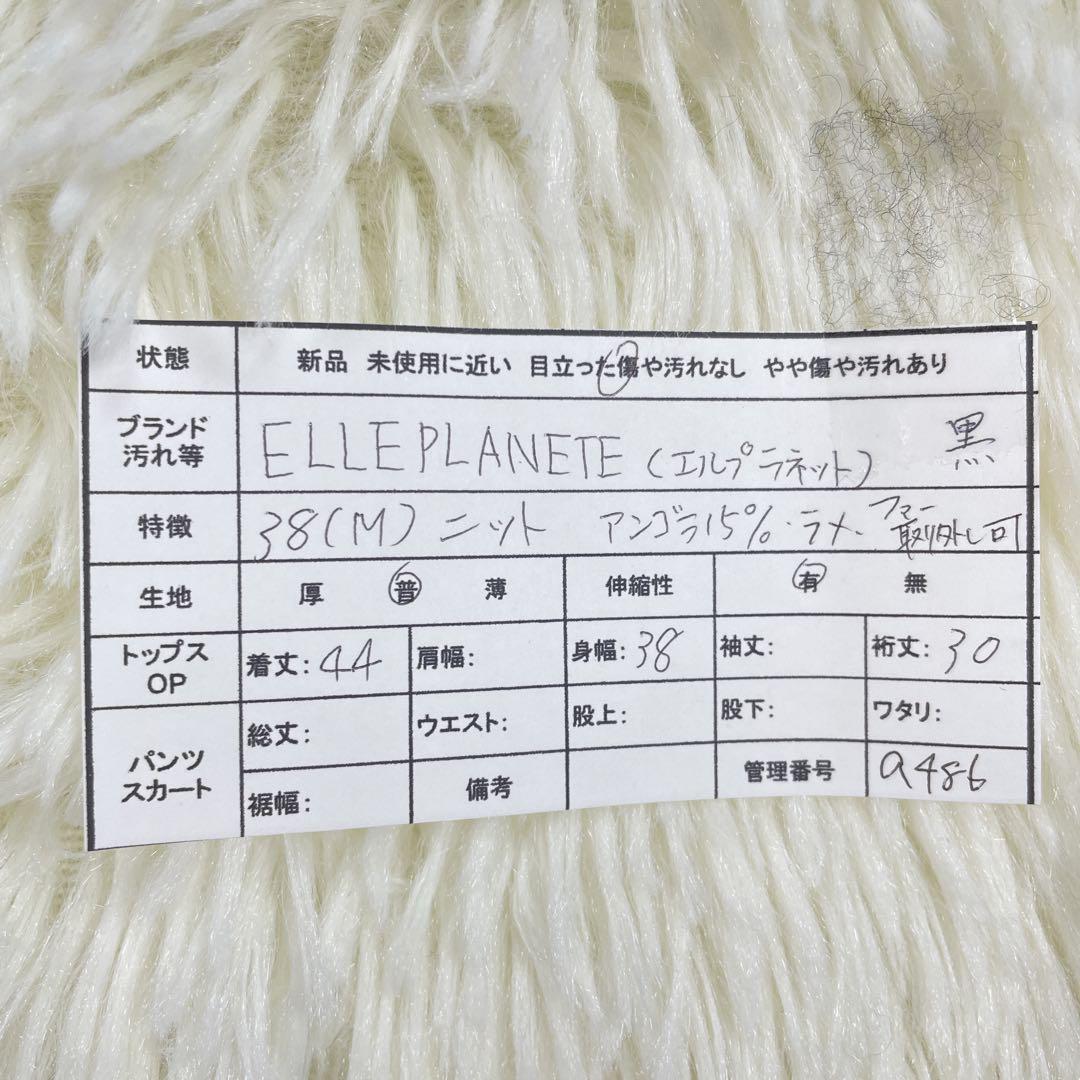 状態 新品 未使用に近い 目立った傷や汚れなし やや傷や汚れあり
ブランド
汚れ等 ELLEPLANETE (エルプラネット) 黒
特徴 38(M) ニット アンゴラ15%・ラメ・ファー
取り外し可
生地 厚 普 薄 伸縮性 有 無
トップス
OP 着丈:44 肩幅: 身幅:38 袖丈: 裄丈:30
パンツ
スカート 総丈: ウエスト: 股上: 股下: ワタリ:
裾幅: 備考 管理番号 a486